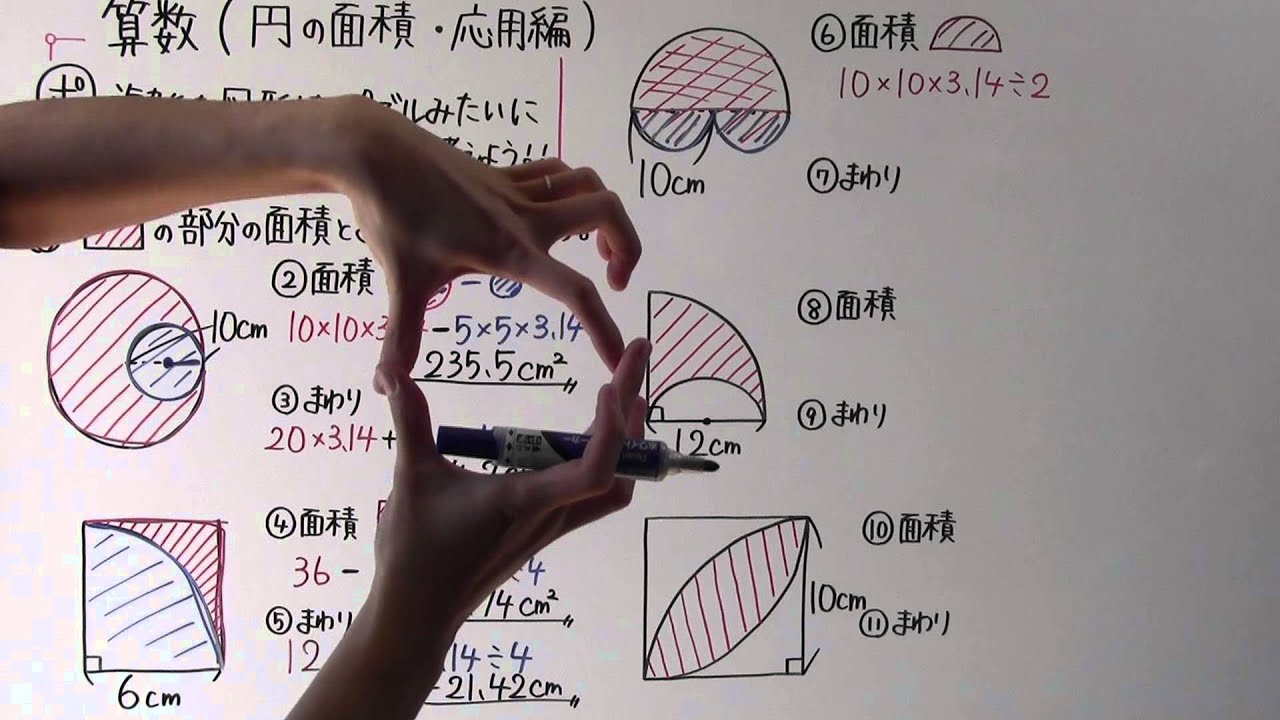 算数(円の面積・応用編)
ルみたいに
の部分の面積と
②面積
10cm
10×10×3
-5×5×3.14
235.5cm²
③まわり
20×3.14+
④面積
36-
÷4
14cm²
⑤まわり
12
14÷4
21.42cm
6cm
⑥面積
10×10×3.14÷2
10cm
⑦まわり
⑧面積
⑨まわり
12cm
⑩面積
10cm
⑪まわり